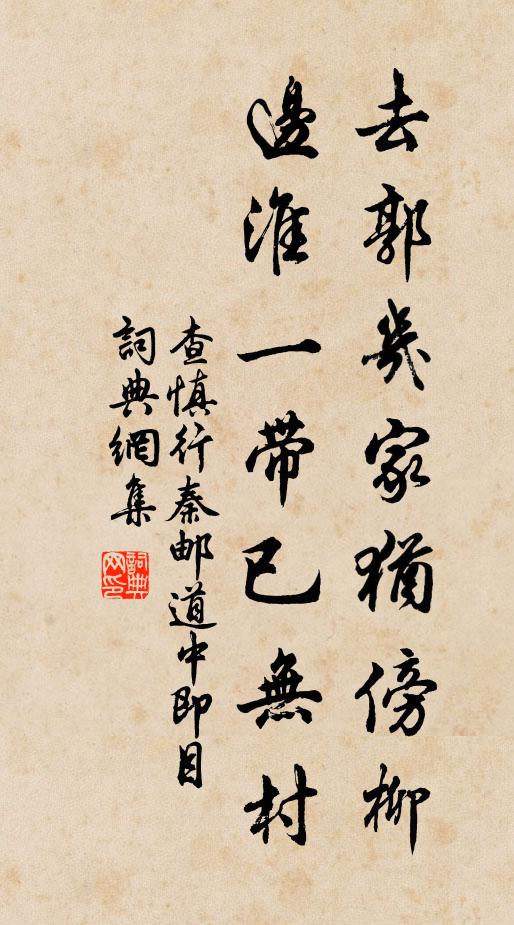 去郭幾家猶傍柳
邊淮一帶已無村
查慎行秦邮道中即目
詞典網集
詞典
网印